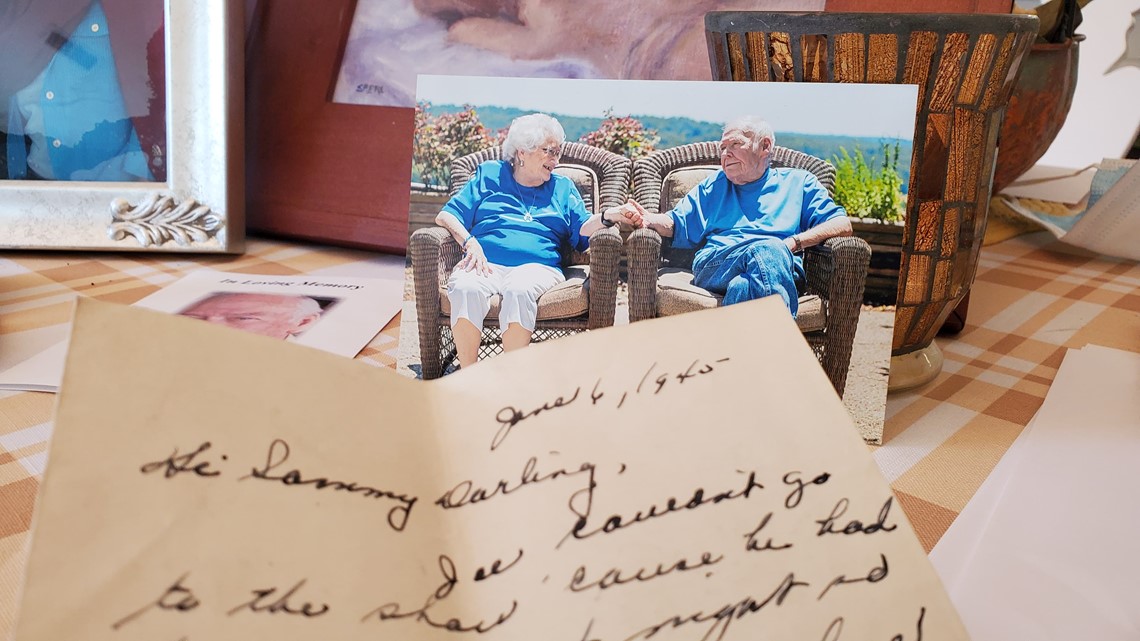 In Loving Memory
June 6, 1945
Hi Sammy Darling,
Joe couldn't go
to the show 'cause he had
night so